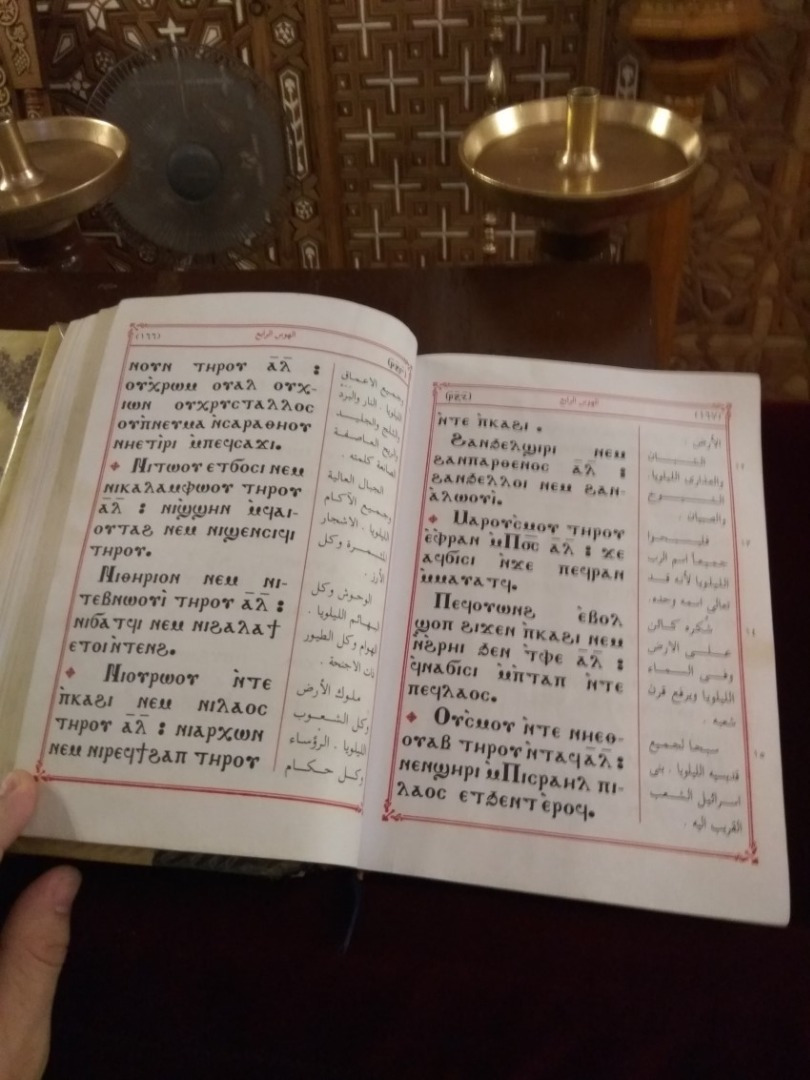 (١٦٦)
الهوس الرابع
(ⲣ̅ⲝ̅ⲋ̅)
ⲛⲟⲩⲛ ⲧⲏⲣⲟⲩ ⲁ̅ⲗ̅ :
ⲟⲩⲭ̀ⲣⲱⲙ ⲟⲩⲁⲗ ⲟⲩⲭ-
ⲓⲱⲛ ⲟⲩⲭⲣⲩⲥⲧⲁⲗⲗⲟⲥ
ⲟⲩⲡⲛⲉⲩⲙⲁ ⲛ̀ⲥⲁⲣⲁⲑⲏⲟⲩ
ⲛⲏⲉⲧⲓ̀ⲣⲓ ⲙ̀ⲡⲉϥⲥⲁϫⲓ.
Ⲛⲓⲧⲱⲟⲩ ⲉⲧϭⲟⲥⲓ ⲛⲉⲙ
ⲛⲓⲕⲁⲗⲁⲙⲫⲱⲟⲩ ⲧⲏⲣⲟⲩ
ⲁ̅ⲗ̅ : ⲛⲓϣ̀ϣⲏⲛ ⲙ̀ϥⲁⲓ-
ⲟⲩⲧⲁϩ ⲛⲉⲙ ⲛⲓϣⲉⲛⲥⲓϥⲓ
ⲧⲏⲣⲟⲩ.
Ⲛⲓⲑⲏⲣⲓⲟⲛ ⲛⲉⲙ ⲛⲓ-
ⲧⲉⲃⲛⲱⲟⲩⲓ̀ ⲧⲏⲣⲟⲩ ⲁ̅ⲗ̅ :
ⲛⲓϭⲁⲧϥⲓ ⲛⲉⲙ ⲛⲓϩⲁⲗⲁϯ
ⲉⲧⲟⲓⲛ̀ⲧⲉⲛϩ.
Ⲛⲓⲟⲩⲣⲱⲟⲩ ⲛ̀ⲧⲉ
ⲡ̀ⲕⲁϩⲓ ⲛⲉⲙ ⲛⲓⲗⲁⲟⲥ
ⲧⲏⲣⲟⲩ ⲁ̅ⲗ̅ : ⲛⲓⲁⲣⲭⲱⲛ
ⲛⲉⲙ ⲛⲓⲣⲉϥϯϩⲁⲡ ⲧⲏⲣⲟⲩ
وجميع الأعماق
الليلويا . النار والبرد
والثلج والجليد
والريح العاصفة
الصانعة كلمته .
الجبال العالية
وجميع الآكام
الليلويا . الأشجار
المثمرة وكل
الأرز .
الوحوش وكل
البهائم الليلويا .
الهوام وكل الطيور
ذات الأجنحة .
ملوك الأرض
وكل الشعوب
الليلويا . الرؤساء
وكل حكام
(ⲣ̅ⲝ̅ⲍ̅)
الهوس الرابع
(١٦٧)
ⲛ̀ⲧⲉ ⲡ̀ⲕⲁϩⲓ .
Ϩⲁⲛϧⲉⲗϣⲓⲣⲓ ⲛⲉⲙ
ϩⲁⲛⲡⲁⲣⲑⲉⲛⲟⲥ ⲁ̅ⲗ̅ :
ϩⲁⲛϧⲉⲗⲗⲟⲓ ⲛⲉⲙ ϩⲁⲛ-
ⲁ̀ⲗⲱⲟⲩⲓ̀.
Ⲙⲁⲣⲟⲩⲥ̀ⲙⲟⲩ ⲧⲏⲣⲟⲩ
ⲉ̀ⲫⲣⲁⲛ ⲙ̀Ⲡⲟ̅ⲥ̅ ⲁ̅ⲗ̅ : ϫⲉ
ⲁϥϭⲓⲥⲓ ⲛ̀ϫⲉ ⲡⲉϥⲣⲁⲛ
ⲙ̀ⲙⲁⲩⲁⲧϥ.
Ⲡⲉϥⲟⲩⲱⲛϩ ⲉ̀ⲃⲟⲗ
ϣⲟⲡ ϩⲓϫⲉⲛ ⲡ̀ⲕⲁϩⲓ ⲛⲉⲙ
ⲛ̀ϩ̀ⲣⲏⲓ ϧⲉⲛ ⲧ̀ⲫⲉ ⲁ̅ⲗ̅ :
ϥ̀ⲛⲁϭⲓⲥⲓ ⲙ̀ⲡ̀ⲧⲁⲡ ⲛ̀ⲧⲉ
ⲡⲉϥⲗⲁⲟⲥ.
Ⲟⲩⲥ̀ⲙⲟⲩ ⲛ̀ⲧⲉ ⲛⲏⲉⲑ-
ⲟⲩⲁⲃ ⲧⲏⲣⲟⲩ ⲛ̀ⲧⲁϥ ⲁ̅ⲗ̅ :
ⲛⲉⲛϣⲏⲣⲓ ⲙ̀Ⲡⲓⲥⲣⲁⲏⲗ ⲡⲓ-
ⲗⲁⲟⲥ ⲉⲧϧⲉⲛⲧⲉ̀ⲣⲟϥ.
الأرض .
الشبان
والعذارى الليلويا .
الشيوخ
والصبيان .
فليسبحوا
جميعا اسم الرب
الليلويا لأنه قد
تعالى اسمه وحده .
شكره كائن
على الأرض
وفى السماء
الليلويا ويرفع قرن
شعبه .
سبحا لجميع
قديسيه الليلويا . بنى
اسرائيل الشعب
القريب اليه .